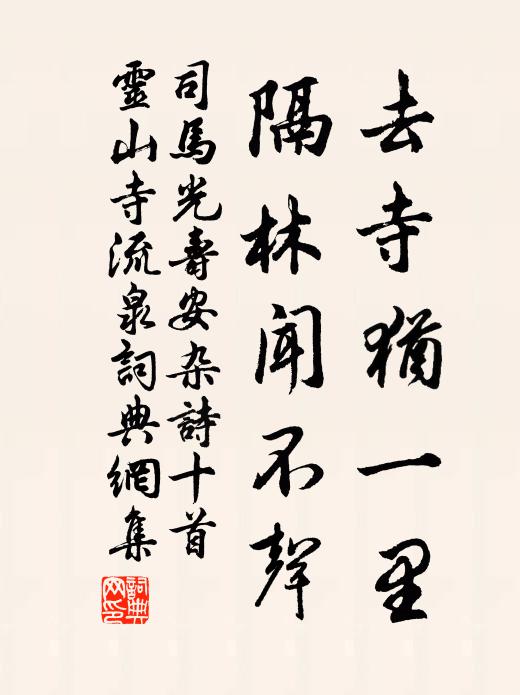 去寺猶一里
隔林聞不聲
司馬光壽安杂詩十首
靈山寺流泉詞典網集
詞典網印